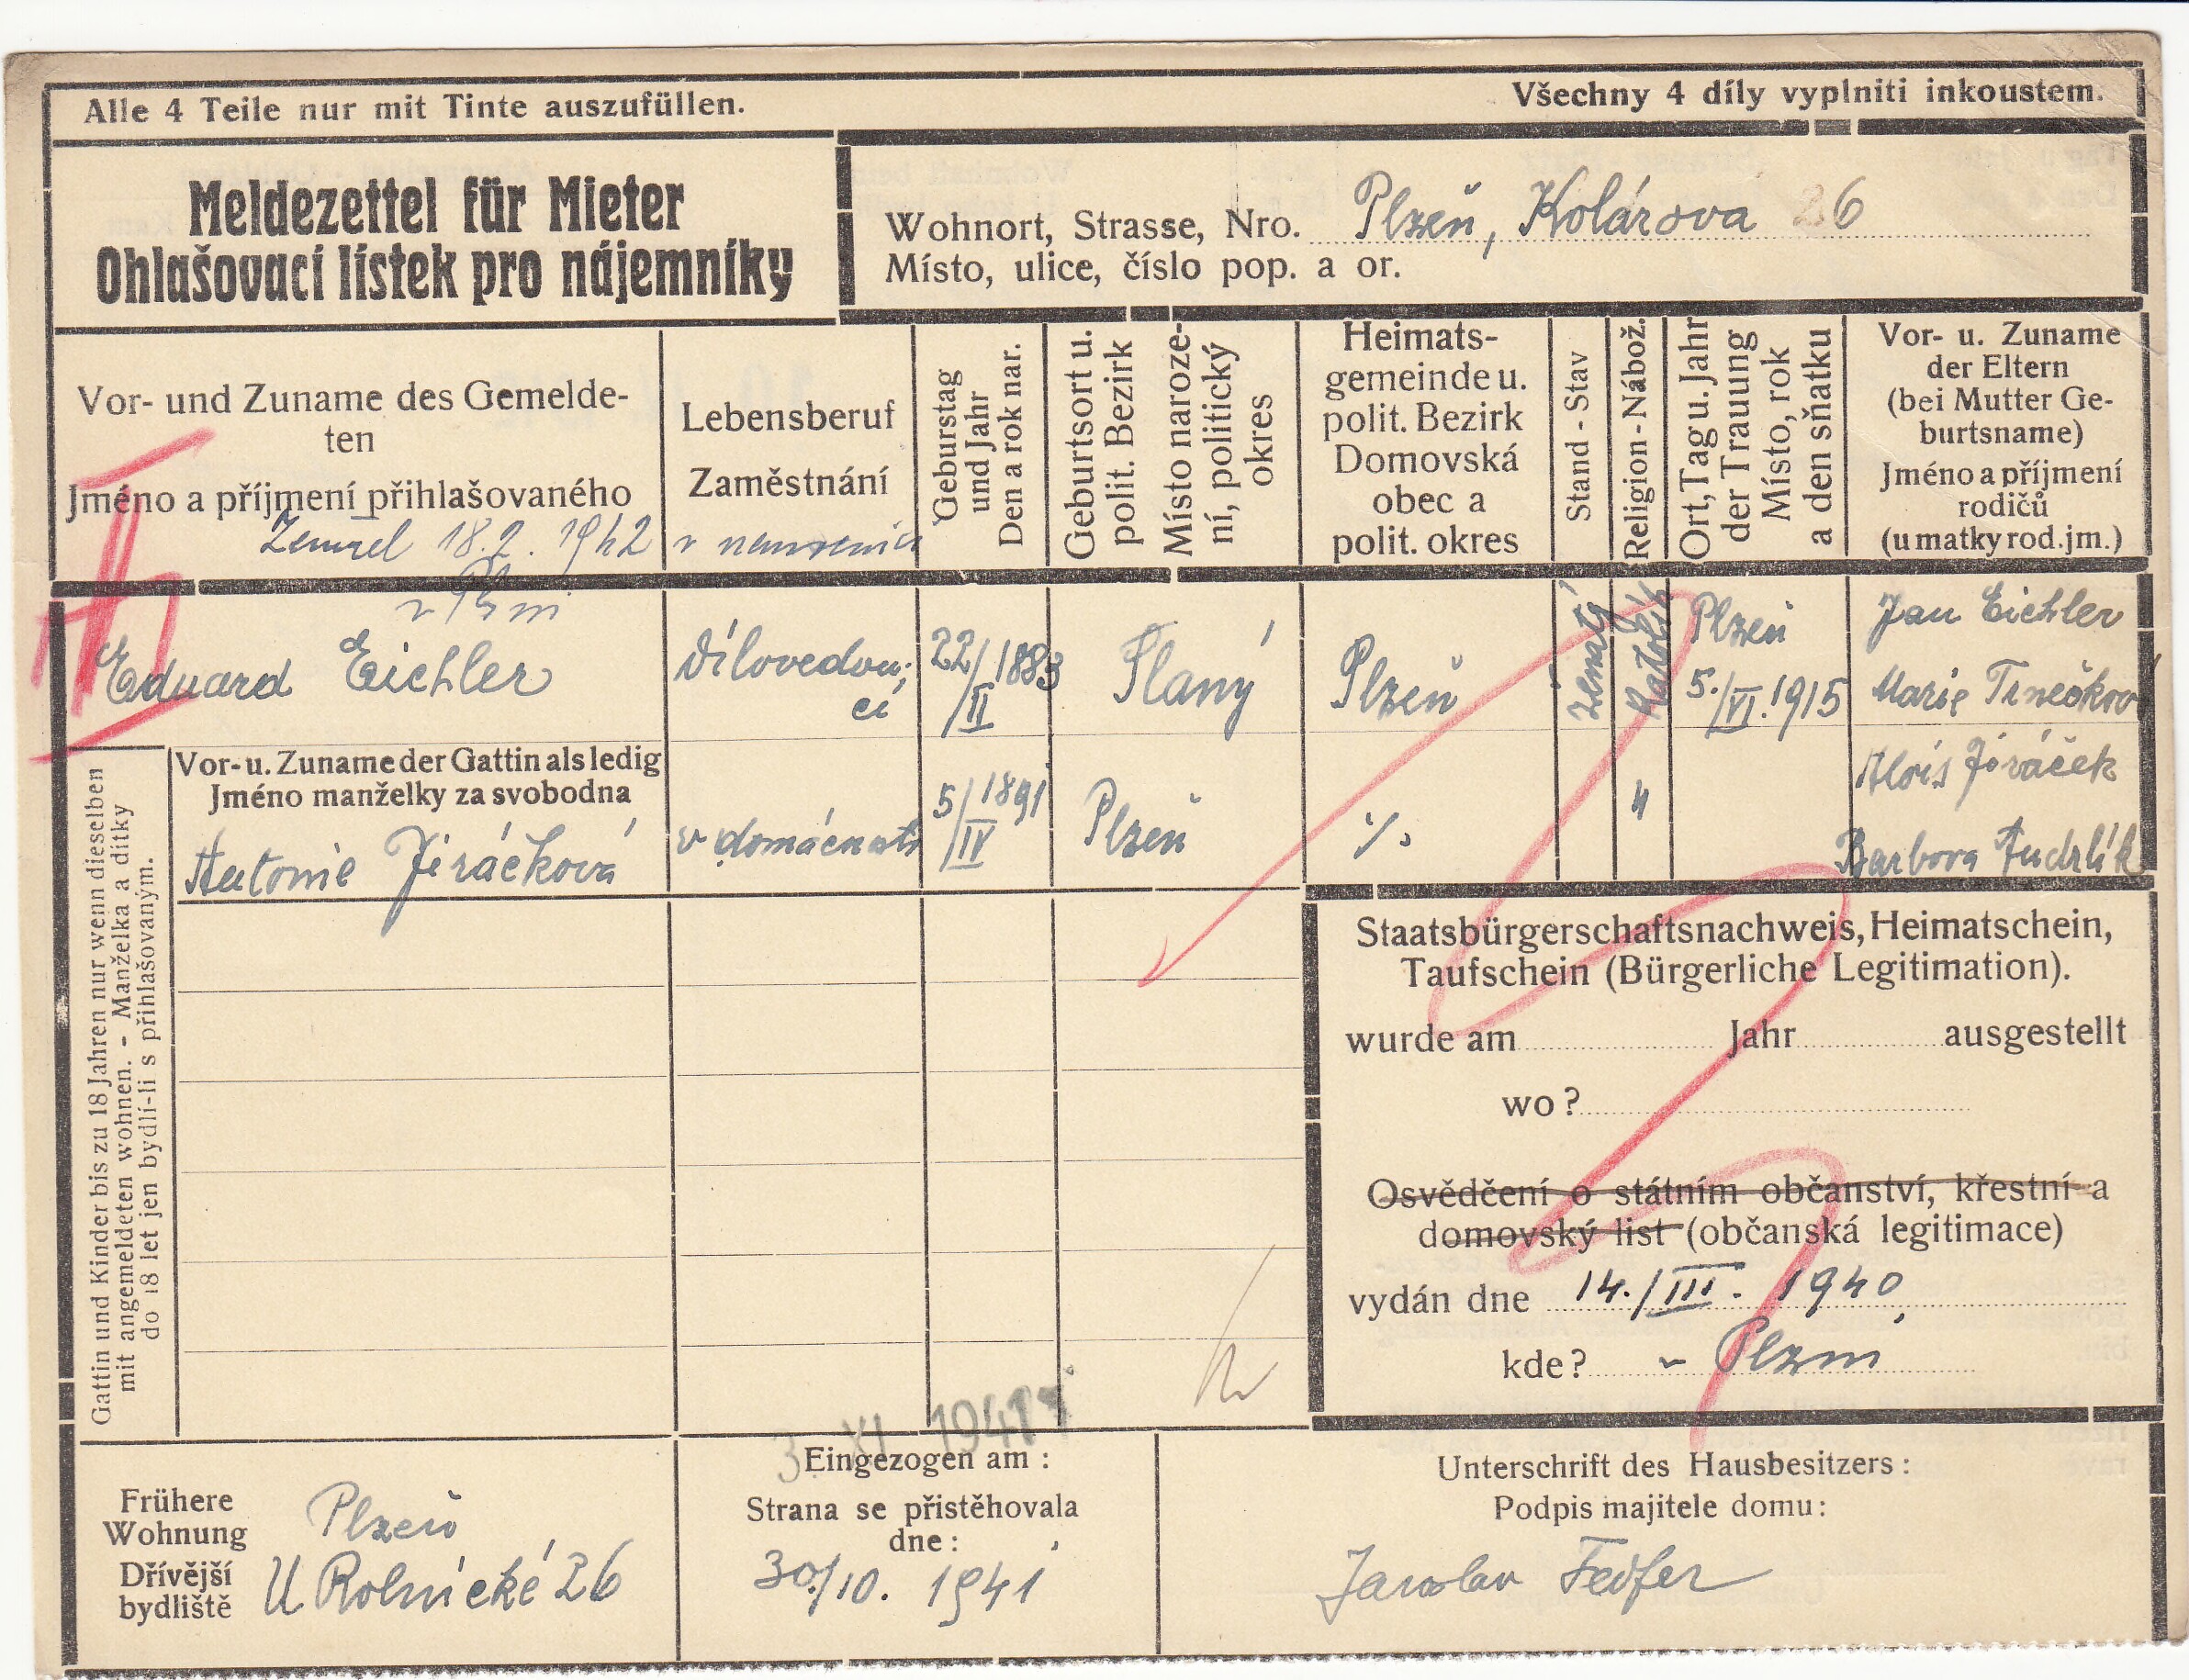 Alle 4 Teile nur mit Tinte auszufüllen.
Všechny 4 díly vyplniti inkoustem.
Meldezettel für Mieter
Ohlašovací lístek pro nájemníky
Wohnort, Strasse, Nro. Plzeň, Kolárova 26
Místo, ulice, číslo pop. a or.
Vor- und Zuname des Gemelde-
ten
Jméno a příjmení přihlašovaného
Zemřel 18.2. 1942 v nemocnici
v Plzni
Lebensberuf
Zaměstnání
Geburstag
und Jahr
Den a rok nar.
Geburtsort u.
polit. Bezirk
Místo naroze-
ní, politický
okres
Heimats-
gemeinde u.
polit. Bezirk
Domovská
obec a
polit. okres
Stand - Stav
Religion - Nábož.
Ort, Tag u. Jahr
der Trauung
Místo, rok
a den sňatku
Vor- u. Zuname
der Eltern
(bei Mutter Ge-
burtsname)
Jméno a příjmení
rodičů
(u matky rod. jm.)
Eduard Eichler
dílovedou-
cí
22/II 1883
Slaný
Plzeň
ženatý
katolík
Plzeň
5./VI. 1915
Jan Eichler
Marie Trnečkov
Vor- u. Zuname der Gattin als ledig
Jméno manželky za svobodna
Antonie Jiráčková
v domácnosti
5/IV 1891
Plzeň
٪.
"
Alois Jiráček
Barbora
Gattin und Kinder bis zu 18 Jahren nur wenn dieselben
mit angemeldeten wohnen. - Manželka a dítky
do 18 let jen bydlí-li s přihlašovaným.
Staatsbürgerschaftsnachweis, Heimatschein,
Taufschein (Bürgerliche Legitimation).
wurde am Jahr ausgestellt
wo?
Osvědčení o státním občanství, křestní a
domovský list (občanská legitimace)
vydán dne 14./III. 1940,
kde? v Plzni
3. XI. 1941
Frühere
Wohnung
Dřívější
bydliště
Plzeň
U Rolnické 26
Eingezogen am:
Strana se přistěhovala
dne:
30./10. 1941
Unterschrift des Hausbesitzers:
Podpis majitele domu:
Jaroslav